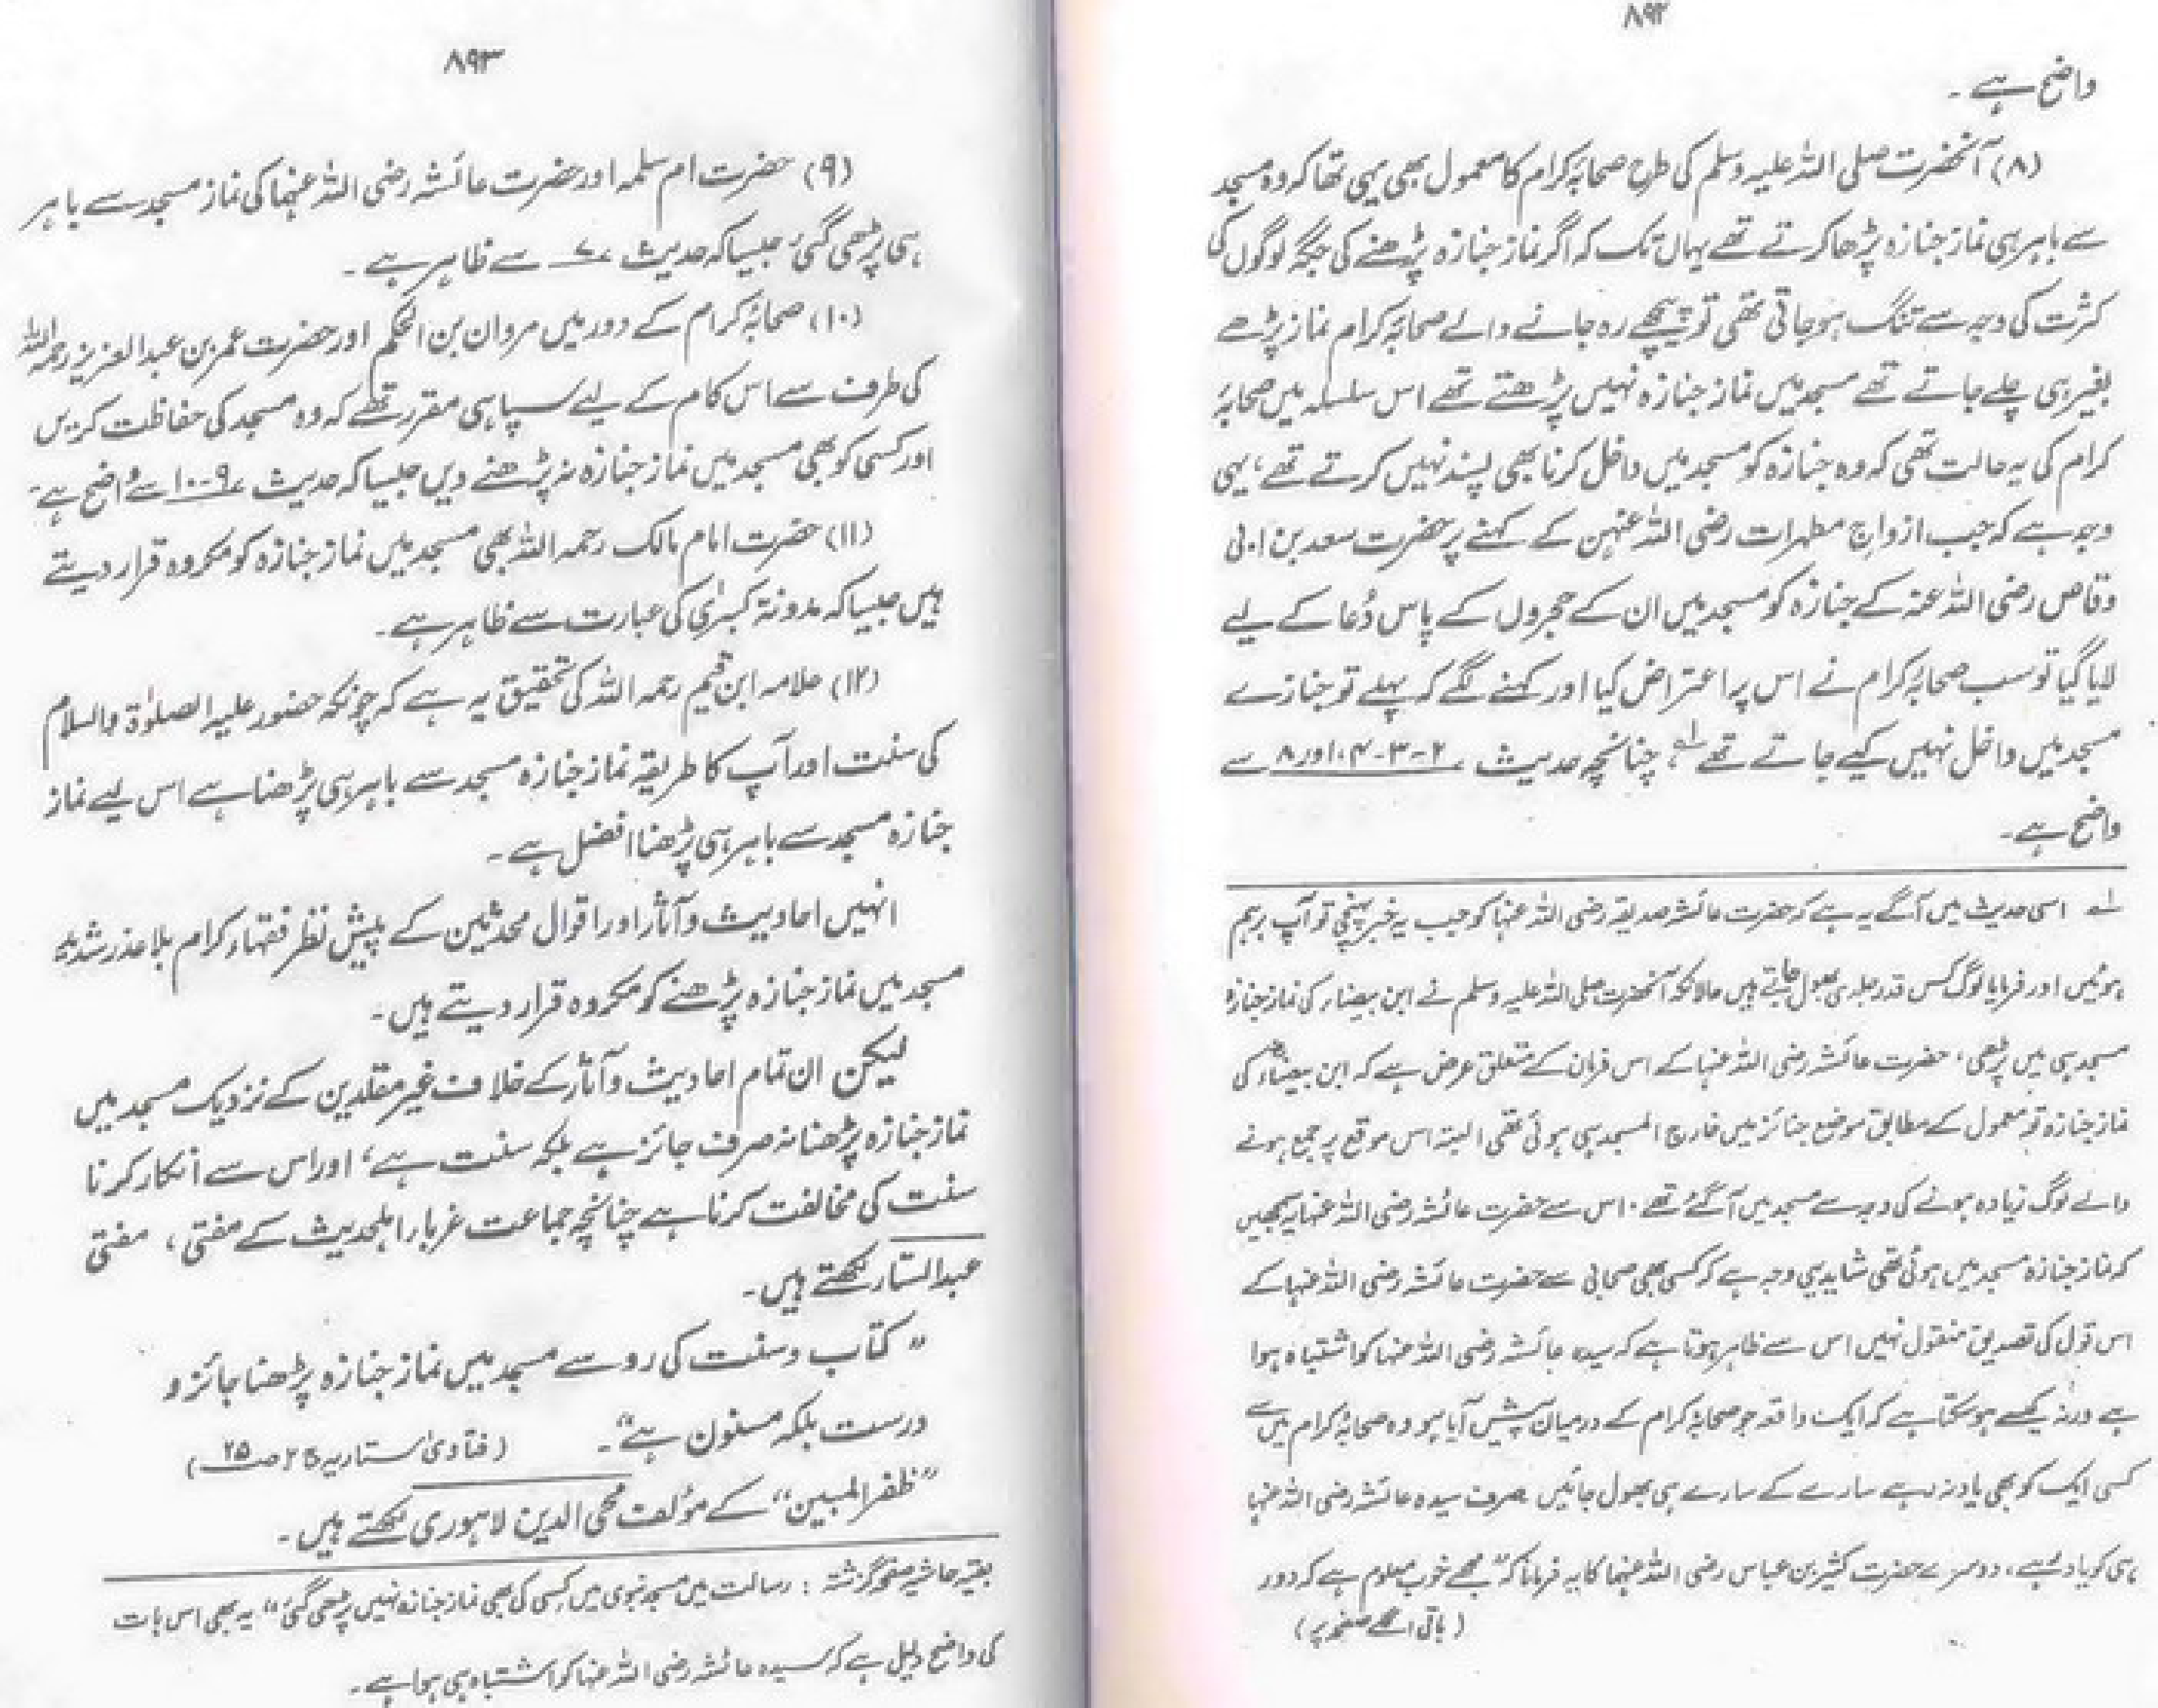 ۸۹۲
واضح ہے ۔
(۸) آنحضرت صلی اللہ علیہ وسلم کی طرح صحابۂ کرام کا معمول بھی یہی تھا کہ وہ مسجد
سے باہر ہی نماز جنازہ پڑھا کرتے تھے یہاں تک کہ اگر نماز جنازہ پڑھنے کی جگہ لوگوں کی
کثرت کی وجہ سے تنگ ہو جاتی تھی تو پیچھے رہ جانے والے صحابۂ کرام نماز پڑھے
بغیر ہی چلے جاتے تھے مسجد میں نماز جنازہ نہیں پڑھتے تھے اس سلسلہ میں صحابۂ
کرام کی یہ حالت تھی کہ وہ جنازہ کو مسجد میں داخل کرنا بھی پسند نہیں کرتے تھے، یہی
وجہ ہے کہ جب ازواج مطہرات رضی اللہ عنہن کے کہنے پر حضرت سعد بن ابی
وقاص رضی اللہ عنہ کے جنازہ کو مسجد میں ان کے حجروں کے پاس دُعا کے لیے
لایا گیا تو سب صحابۂ کرام نے اس پر اعتراض کیا اور کہنے لگے کہ پہلے تو جنازے
مسجد میں داخل نہیں کیے جاتے تھے لہ، چنانچہ حدیث ۲-۳-۴، اور ۸ سے
واضح ہے۔
لہ اسی حدیث میں آگے یہ ہے کہ حضرت عائشہ صدیقہ رضی اللہ عنہا کو جب یہ خبر پہنچی تو آپ برہم
ہوئیں اور فرمایا لوگ کس قدر جلدی بھول جاتے ہیں حالانکہ آنحضرت صلی اللہ علیہ وسلم نے ابن بیضاء کی نماز جنازہ
مسجد ہی میں پڑھی، حضرت عائشہ رضی اللہ عنہا کے اس فرمان کے متعلق عرض ہے کہ ابن بیضاء کی
نماز جنازہ تو معمول کے مطابق موضع جنائز میں خارج المسجد ہی ہوئی تھی البتہ اس موقع پر جمع ہونے
والے لوگ زیادہ ہونے کی وجہ سے مسجد میں آگئے تھے۔ اس سے حضرت عائشہ رضی اللہ عنہا یہ سمجھیں
کہ نماز جنازہ مسجد میں ہوئی تھی شاید یہی وجہ ہے کہ کسی بھی صحابی سے حضرت عائشہ رضی اللہ عنہا کے
اس قول کی تصدیق منقول نہیں اس سے ظاہر ہوتا ہے کہ سیدہ عائشہ رضی اللہ عنہا کو اشتباہ ہوا
ہے ورنہ کیسے ہو سکتا ہے کہ ایک واقعہ جو صحابۂ کرام کے درمیان پیش آیا ہو وہ صحابۂ کرام میں سے
کسی ایک کو بھی یاد نہ رہے سارے کے سارے ہی بھول جائیں صرف سیدہ عائشہ رضی اللہ عنہا
ہی کو یاد رہے، دوسرے حضرت کثیر بن عباس رضی اللہ عنہما کا یہ فرمانا کہ "مجھے خوب معلوم ہے کہ دور
(باقی اگلے صفحہ پر)
۸۹۳
(۹) حضرت ام سلمہ اور حضرت عائشہ رضی اللہ عنہما کی نماز مسجد سے باہر
ہی پڑھی گئی، جیسا کہ حدیث ۷ سے ظاہر ہے ۔
(۱۰) صحابۂ کرام کے دور میں مروان بن الحکم اور حضرت عمر بن عبد العزیز رحمہ اللہ
کی طرف سے اس کام کے لیے سپاہی مقرر تھے کہ وہ مسجد کی حفاظت کریں
اور کسی کو بھی مسجد میں نماز جنازہ نہ پڑھنے دیں جیسا کہ حدیث ۹-۱۰ سے واضح ہے۔
(۱۱) حضرت امام مالک رحمہ اللہ بھی مسجد میں نماز جنازہ کو مکروہ قرار دیتے
ہیں جیسا کہ مدونۃ کبریٰ کی عبارت سے ظاہر ہے۔
(۱۲) علامہ ابن قیم رحمہ اللہ کی تحقیق یہ ہے کہ چونکہ حضور علیہ الصلوٰۃ والسلام
کی سنت اور آپ کا طریقہ نماز جنازہ مسجد سے باہر ہی پڑھنا ہے اس لیے نماز
جنازہ مسجد سے باہر ہی پڑھنا افضل ہے ۔
انہیں احادیث و آثار اور اقوال محدثین کے پیش نظر فقہاء کرام بلا عذر شدید
مسجد میں نماز جنازہ پڑھنے کو مکروہ قرار دیتے ہیں۔
لیکن ان تمام احادیث و آثار کے خلاف غیر مقلدین کے نزدیک مسجد میں
نماز جنازہ پڑھنا نہ صرف جائز ہے بلکہ سنت ہے، اور اس سے انکار کرنا
سنت کی مخالفت کرنا ہے چنانچہ جماعت غرباء اہلحدیث کے مفتی، مفتی
عبد الستار لکھتے ہیں۔
"کتاب و سنت کی رو سے مسجد میں نماز جنازہ پڑھنا جائز و
درست بلکہ مسنون ہے"۔ (فتاویٰ ستاریہ ج ۲ ص ۲۵)
"ظفر المبین" کے مؤلف محی الدین لاہوری لکھتے ہیں ۔
بقیہ حاشیہ صفحہ گزشتہ : رسالت میں مسجد نبوی میں کسی کی بھی نماز جنازہ نہیں پڑھی گئی" یہ بھی اس بات
کی واضح دلیل ہے کہ سیدہ عائشہ رضی اللہ عنہا کو اشتباہ ہی ہوا ہے ۔